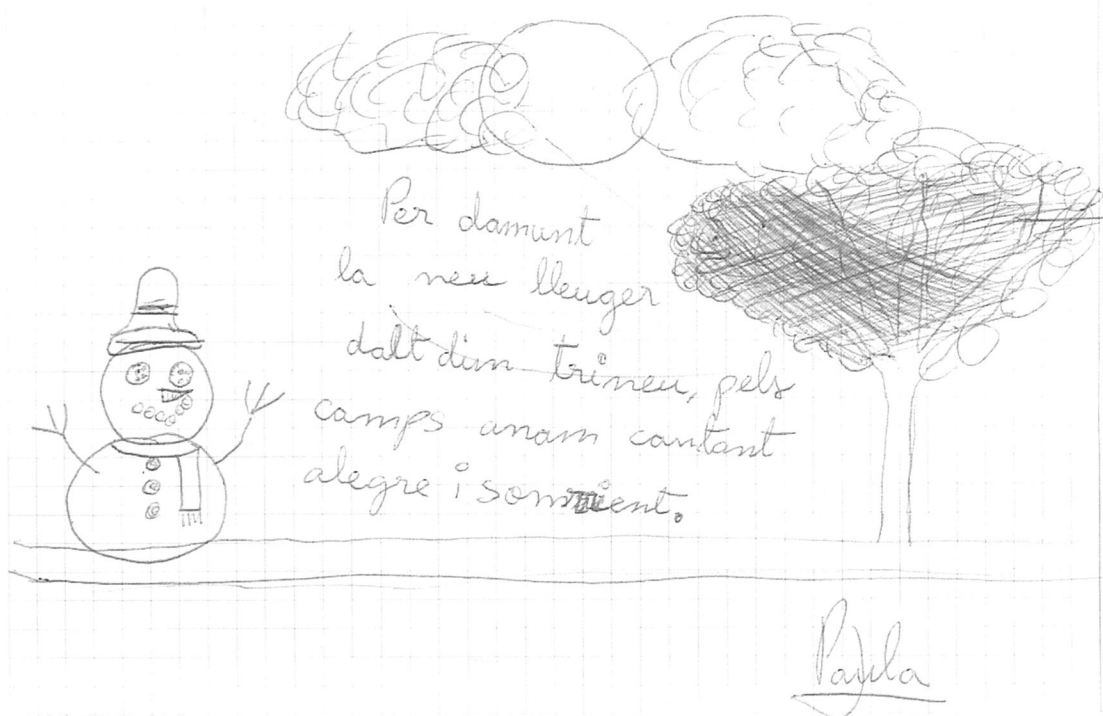 Per damunt
la neu lleuger
dalt d'un trineu, pels
camps anam cantant
alegre i somrient.
Paula